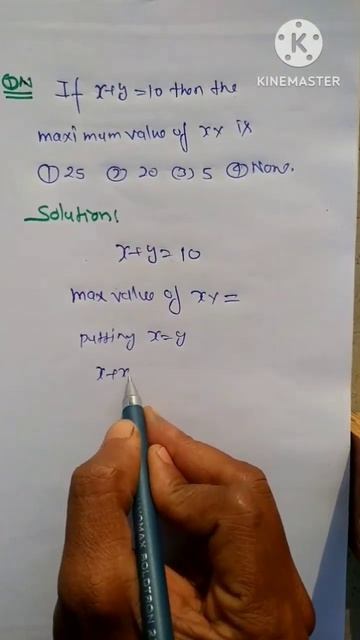 K
KINEMASTER
QN If x+y=10 then the
maximum value of xy is
① 25 ② 20 ③ 5 ④ None.
Solution:
x+y=10
max value of xy=
putting x=y
x+x